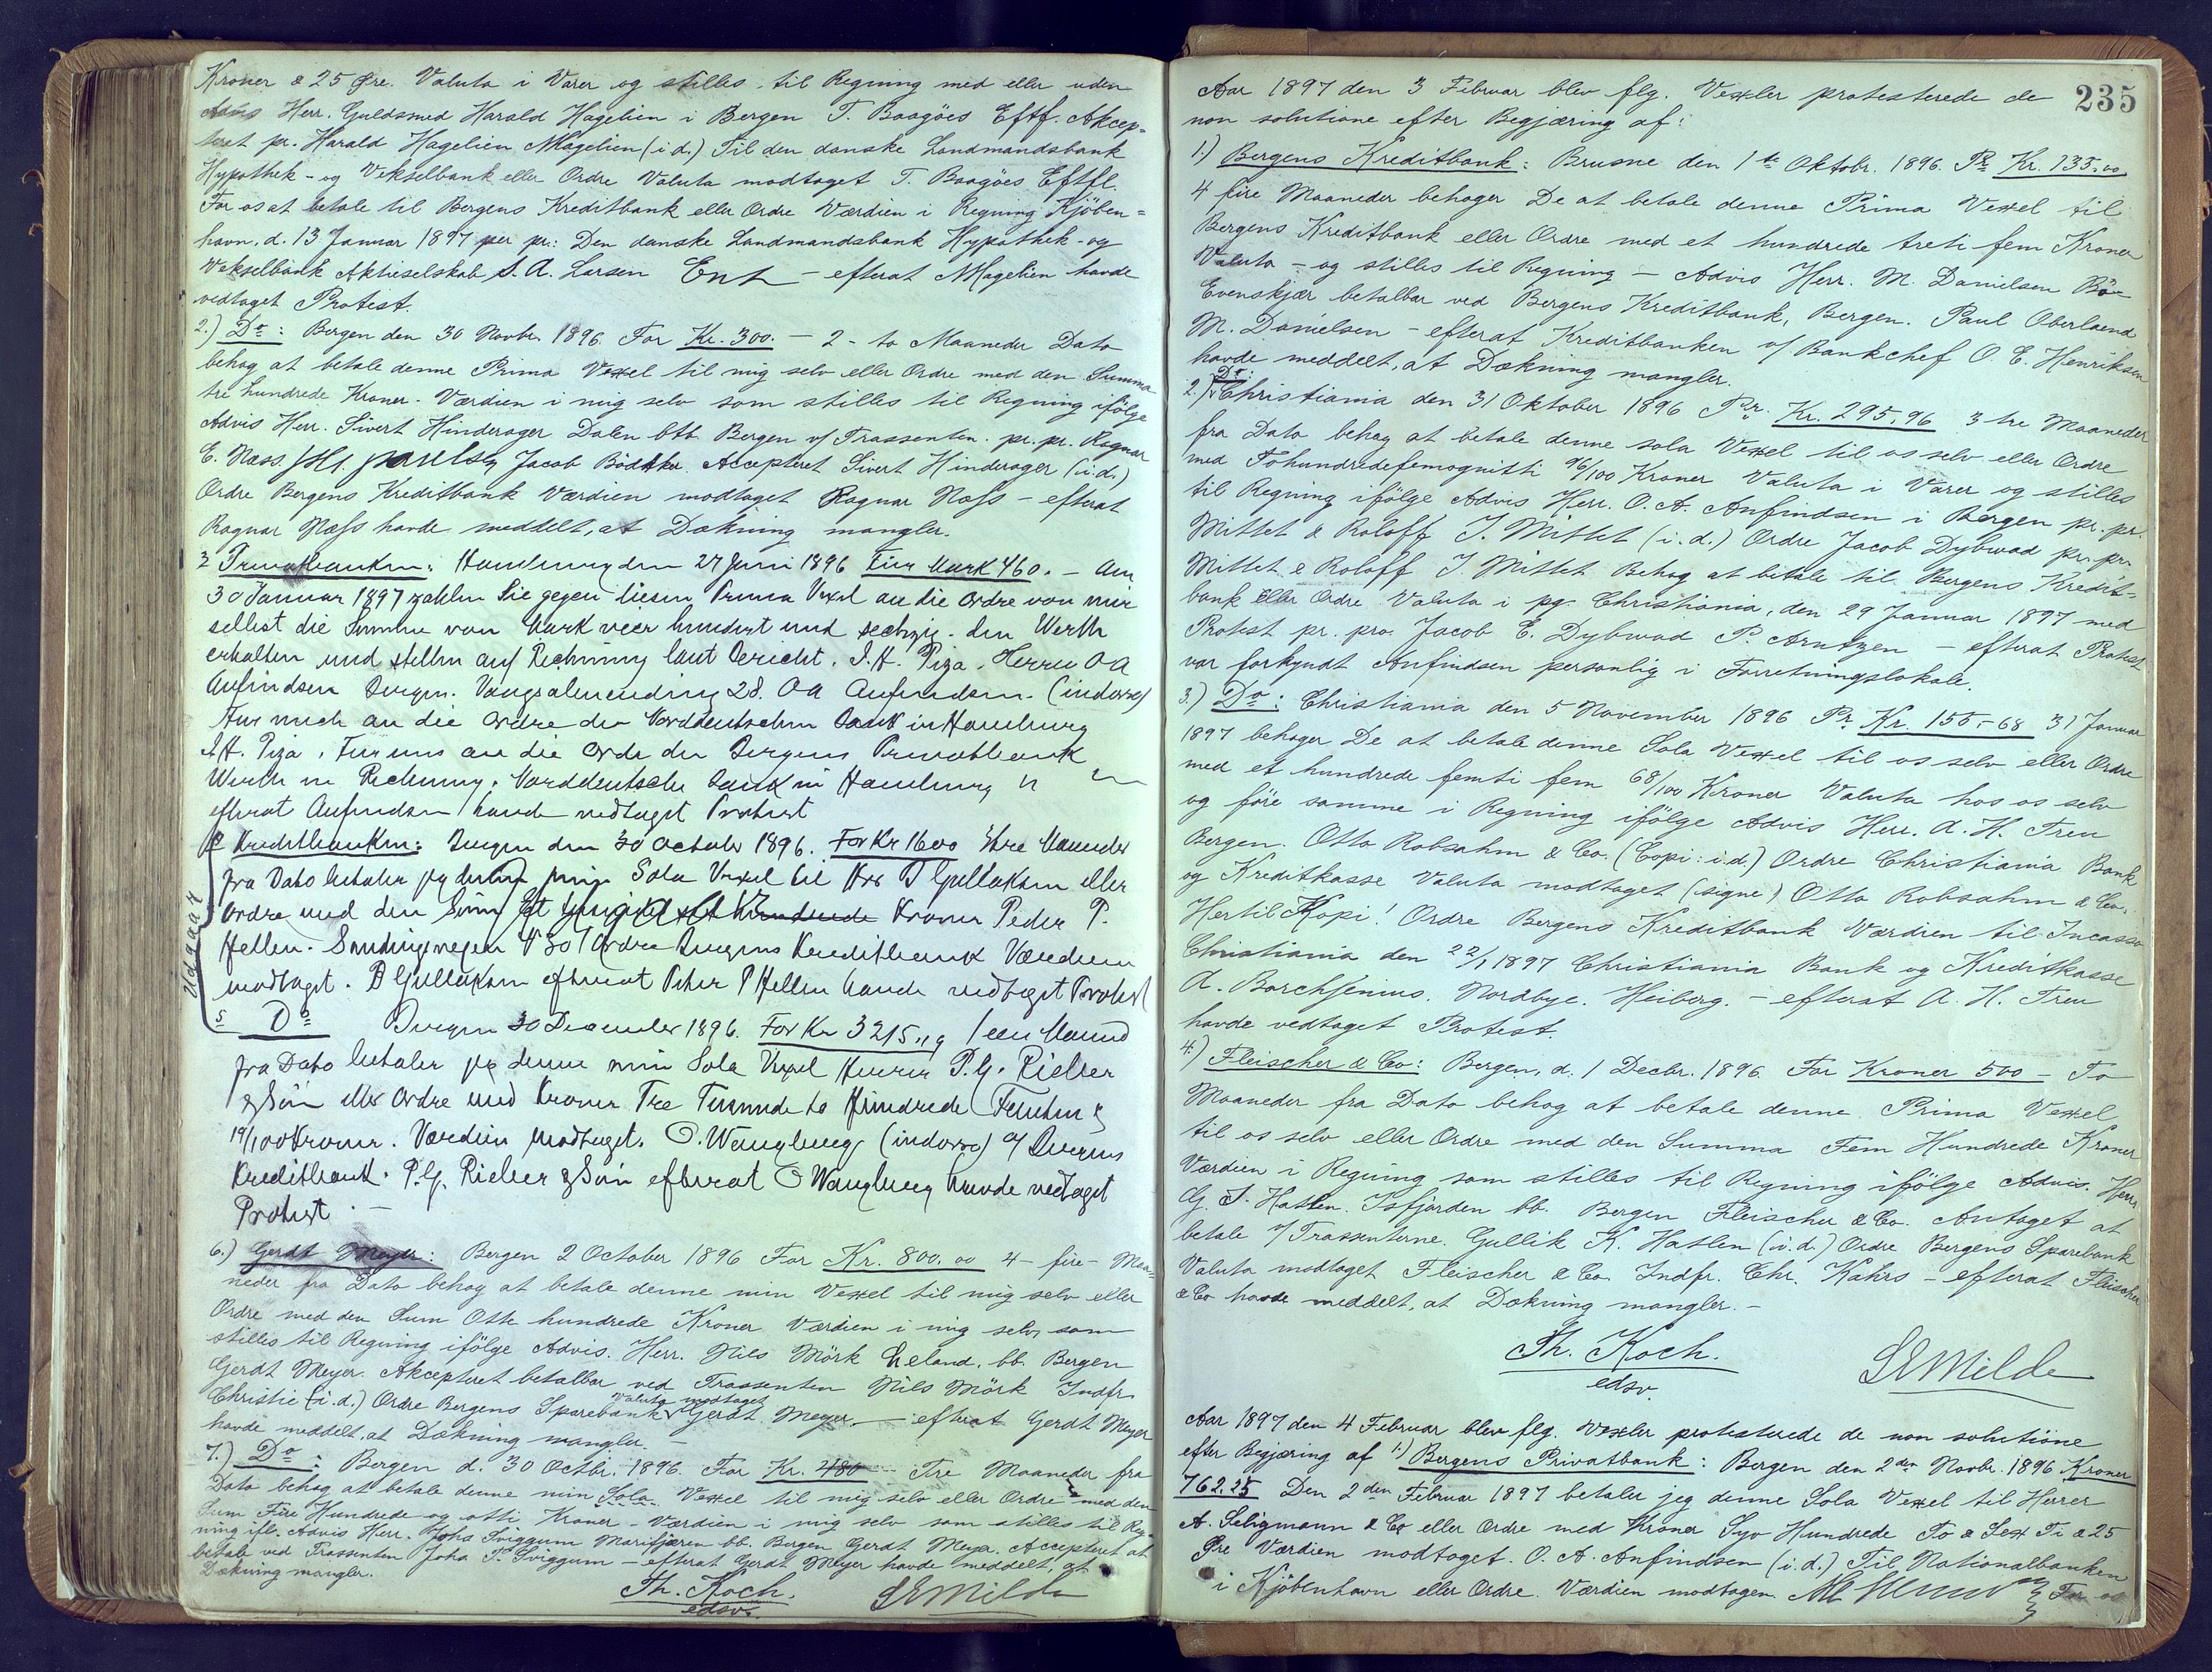 Kroner & 25 Øre. Valuta i Varer og stilles til Regning med eller uden
Advis Herr. Guldsmed Harald Hagelien i Bergen T. Baagöes Eftf. Akcep=
teret pr. Harald Hagelien MHagelien (i.d.) Til den danske Landmandsbank
Hypothek- og Vekselbank eller Ordre Valuta modtaget T. Baagöes Eftfl.
For os at betale til Bergens Kreditbank eller Ordre Værdien i Regning Kjöben=
havn, d. 13 Januar 1897 per pr: Den danske Landmandsbank Hypothek- og
Vekselbank Aktieselskab S. A. Larsen — efterat MHagelien havde
vedtaget Protest.
2.) Do: Bergen den 30 Novbr. 1896. For Kr. 300. — 2 - to Maaneder Dato
behag at betale denne Prima Vexel til mig selv eller Ordre med den Summa
tre hundrede Kroner. Værdien i mig selv som stilles til Regning ifölge
Advis Herr. Sivert Hinderager Dalen btb. Bergen v/ Trassenten. pr. pr. Ragnar
E. Næss. Jacob Bödtker. Accepteret Sivert Hinderager (i.d.)
Ordre Bergens Kreditbank Værdien modtaget Ragnar Næss — efterat
Ragnar Næss havde meddelt, at Dækning mangler.
3 Privatbanken: Hamburg den 27 Juni 1896 Für Mark 460. — Am
30 Januar 1897 zahlen Sie gegen diesen Prima Vexel an die Ordre von mir
selbst die Summe von Mark vier hundert und sechzig. den Werth
erhalten und stellen auf Rechnung laut Bericht. J.H. Piza. Herren O A
Anfindsen Bergen. Vaagsalmending 28. OA Anfindsen. (indorso)
Für mich an die Ordre der Norddeutschen Bank in Hamburg
J.H. Piza. Für uns an die Ordre der Bergens Privatbank
Werth in Rechnung. Norddeutsche Bank in Hamburg
efterat Anfindsen havde vedtaget Protest
Udgaar
4 Kreditbanken: Bergen den 30 October 1896. For Kr 1600 3tre Maaneder
fra Dato betaler jeg denne min Sola Vexel til Hrr D Gullaksen eller
Ordre med den Sum Kroner Peder P.
Hellen. Sandviksveien No 30 / Ordre Bergens Kreditbank Værdien
modtaget. D Gullaksen efterat Peder P Hellen havde vedtaget Protest
5 Do Bergen 30 December 1896. For Kr 3215,19 1 een Maaned
fra Dato betaler jeg denne min Sola Vexel Herrer P.G. Rieber
& Søn eller Ordre med Kroner Tre Tusinde to Hundrede Femten &
19/100 Kroner. Værdien modtaget. O. Wangberg (indorso) Bergens
Kreditbank. P.G. Rieber & Søn efterat O Wangberg havde vedtaget
Protest. —
6.) Gerdt Meyer: Bergen 2 October 1896 For Kr. 800.00 4 - fire - Maa=
neder fra Dato behag at betale denne min Vexel til mig selv eller
Ordre med den Sum Otte hundrede Kroner Værdien i mig selv, som
stilles til Regning ifölge Advis. Herr. Nils Mörk Leland. bb. Bergen
Gerdt Meyer. Akcepteret betalbar ved Trassenten Nils Mörk Indfr.
Christie (i.d.) Ordre Bergens Sparebank Valuta modtaget Gerdt Meyer. — efterat Gerdt Meyer
havde meddelt, at Dækning mangler. —
7.) Do: Bergen d. 30 Octbr. 1896. For Kr. 480 Tre Maaneder fra
Dato behag at betale denne min Sola Vexel til mig selv eller Ordre med den
Sum Fire Hundrede og otti Kroner - Værdien i mig selv som stilles til Reg=
ning ifl. Advis Herr. Johs Sviggum Marifjæren bb. Bergen Gerdt Meyer. Accepteret at
betale ved Trassenten Joha T. Sviggum — efterat Gerdt Meyer havde meddelt, at
Dækning mangler.
Th. Koch. SEMilde
edsv.
235
Aar 1897 den 3 Februar blev flg. Vexler protesterede de
non solutione efter Begjæring af:
1.) Bergens Kreditbank: Brusne den 1te Oktobr. 1896. Pr Kr. 135.00
4 fire Maaneder behager De at betale denne Prima Vexel til
Bergens Kreditbank eller Ordre med et hundrede treti fem Kroner
Valuta - og stilles til Regning — Advis Herr. M. Danielsen Bö-
Evenskjær betalbar ved Bergens Kreditbank, Bergen. Paul Oberlaend
M. Danielsen — efterat Kreditbanken v/ Bankchef O. E. Henriksen
havde meddelt, at Dækning mangler.
2.) Do: Christiania den 31 Oktober 1896 Pr. Kr. 295,96 3 tre Maaneder
fra Dato behag at betale denne sola Vexel til os selv eller Ordre
med Tohundredefemognitti 96/100 Kroner Valuta i Varer og stilles
til Regning ifölge Advis Herr. O. A. Anfindsen i Bergen pr. pr.
Mittet & Roloff J. Mittet (i.d.) Ordre Jacob Dybwad pr. pr.
Mittet & Roloff J. Mittet Behag at betale til Bergens Kredit-
bank eller Ordre Valuta i pg. Christiania, den 29 Januar 1897 med
Protest pr. pro. Jacob E. Dybwad P. Arntzen — efterat Protest
var forkyndt Anfindsen personlig i Forretningslokale.
3.) Do: Christiania den 5 November 1896 Pr Kr. 155.-68 31 Januar
1897 behager De at betale denne Sola Vexel til os selv eller Ordre
med et hundrede femti fem 68/100 Kroner Valuta hos os selv
og före samme i Regning ifölge Advis Herr. A. H. Treu
Bergen. Otto Robsahm & Co. (Copi: i.d.) Ordre Christiania Bank
og Kreditkasse Valuta modtaget (signe) Otto Robsahm & Co.
Hertil Kopi! Ordre Bergens Kreditbank Værdien til Incasso
Christiania den 22/1 1897 Christiania Bank og Kreditkasse
A. Borchsenius. Nordbye. Heiberg. — efterat A. H. Treu
havde vedtaget Protest.
4.) Fleischer & Co: Bergen, d. 1 Decbr. 1896. For Kroner 500 — To
Maaneder fra Dato behag at betale denne Prima Vexel
til os selv eller Ordre med den Summa Fem Hundrede Kroner
Værdien i Regning som stilles til Regning ifölge Advis. Herr
G. S. Hatlen. Isfjorden bb. Bergen Fleischer & Co. Antaget at
betale v/ Trassenterne. Gullik K. Hatlen (i.d.) Ordre Bergens Sparebank
Valuta modtaget Fleischer & Co. Indfr. Chr. Kahrs — efterat Fleischer
& Co havde meddelt, at Dækning mangler. —
Th. Koch. SEMilde
edsv.
Aar 1897 den 4 Februar blev flg. Vexler protesterede de non solutione
efter Begjæring af 1.) Bergens Privatbank: Bergen den 2den Novbr. 1896 Kroner
762.25 Den 2den Februar 1897 betaler jeg denne Sola Vexel til Herrer
A. Seligmann & Co eller Ordre med Kroner Syv Hundrede To & Sex Ti & 25
Øre Værdien modtaget. O. A. Anfindsen (i.d.) Til Nationalbanken
i Kjöbenhavn eller Ordre. Værdien modtagen. For os